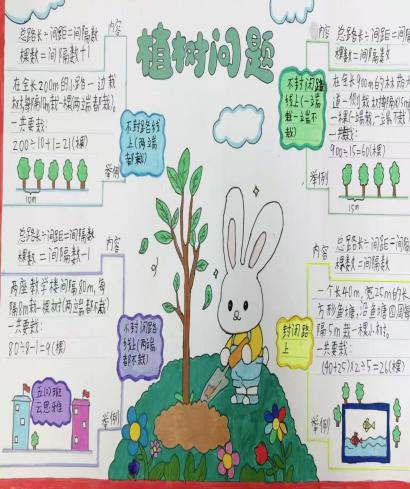 植树问题
内容
总路长÷间距=间隔数
棵数=间隔数+1
在全长200m的小路一边栽
树,每隔10m栽一棵(两端都栽)。
一共要栽:
200÷10+1=21(棵)
举例
10m
不封闭路线
上(两端
都栽)
内容
总路长÷间距=间隔数
棵数=间隔数
在全长900m的
道一侧栽树,每隔15m
一棵(一端栽一端不栽)
一共要栽:
900÷15=60(棵)
举例
15m
不封闭路
线上(一端
栽一端不
栽)
内容
总路长÷间距=间隔数
棵数=间隔数-1
两座教学楼间隔80m,每
隔8m栽一棵树(两端都不栽)
一共要栽:
80÷8-1=9(棵)
举例
不封闭路
线上(两端
都不栽)
五(2)班
内容
总路长÷间距=间隔数
棵数=间隔数
一个长40m,宽25m的长
方形鱼塘,沿鱼塘四周每
隔5m栽一棵小树。
一共要栽:
(40+25)×2÷5=26(棵)
举例
封闭路
上